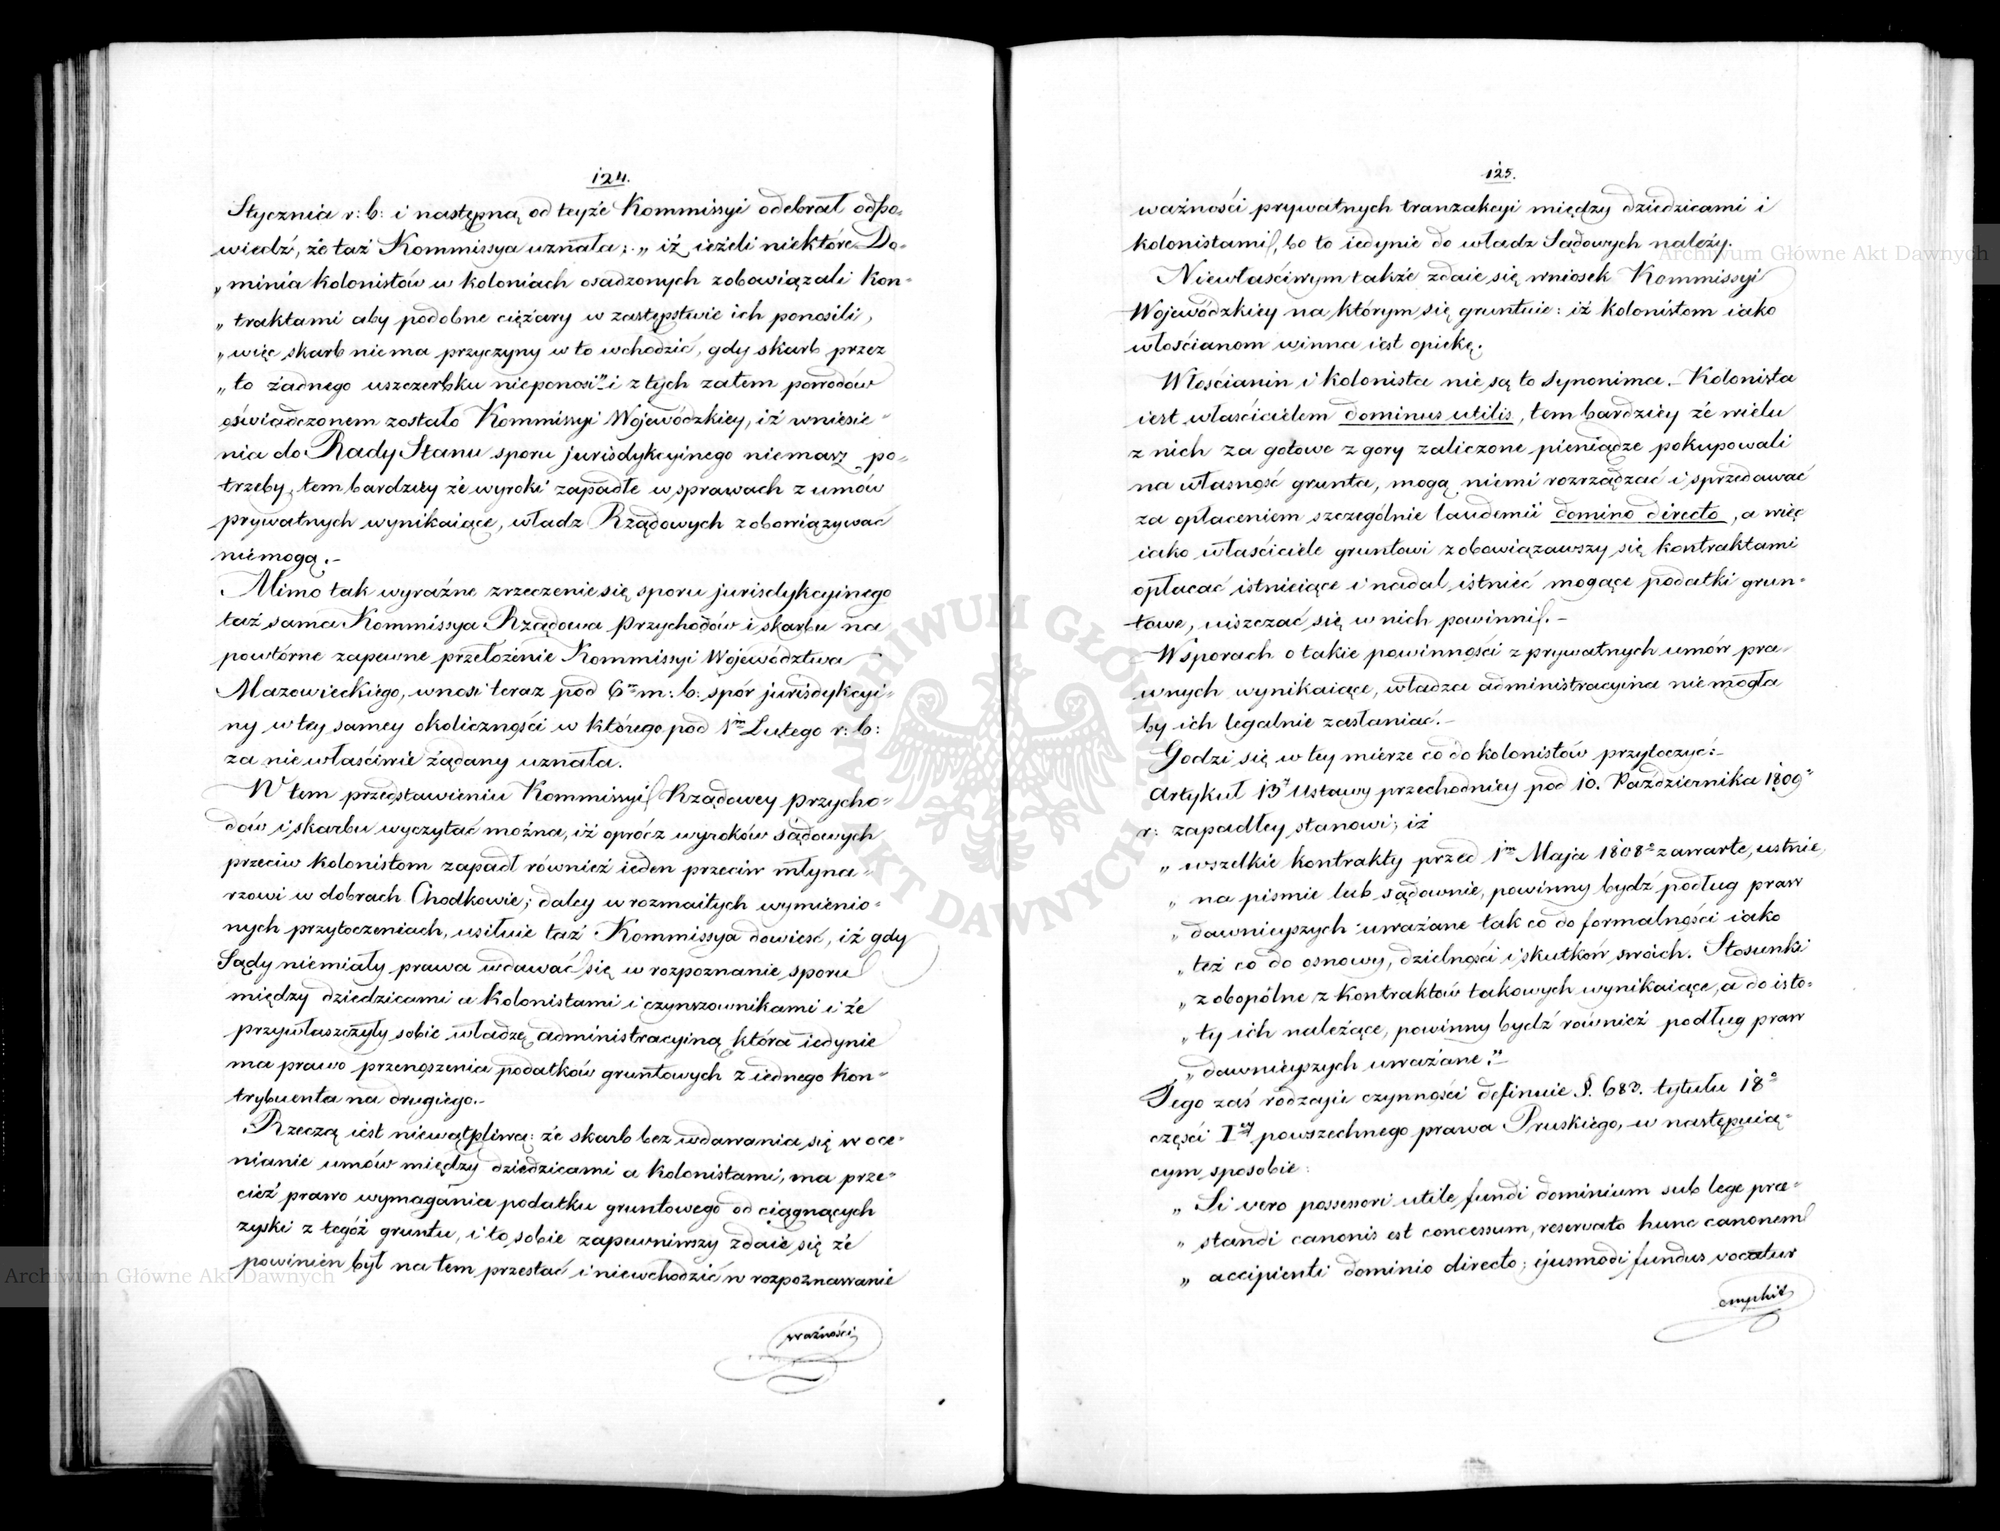 124.
Stycznia r: b: i następną od teyże Kommissyi odebrał odpo-
wiedź, że taż Kommissya uznała: „iż ieżeli niektóre Do-
„minia kolonistów w koloniach osadzonych zobowiązali kon-
„traktami aby podobne ciężary w zastępstwie ich ponosili,
„więc skarb niema przyczyny w to wchodzić, gdy skarb przez
„to żadnego uszczerbku nieponosi" i z tych zatem powodów
oświadczonem zostało Kommissyi Wojewódzkiey, iż wniesie-
nia do Rady Stanu sporu jurisdykcyinego niemasz po-
trzeby, tem bardziey że wyroki zapadłe w sprawach z umów
prywatnych wynikaiące, władz Rządowych zobowiązywać
niemogą.-
Mimo tak wyraźne zrzeczenie się sporu jurisdykcyinego
taż sama Kommissya Rządowa Przychodów i skarbu na
powtórne zapewne przełożenie Kommissyi Województwa
Mazowieckiego, wnosi teraz pod 6m m: b: spór jurisdykcyi-
ny w tey samey okoliczności w którego pod 1m Lutego r: b:
za niewłaściwie żądany uznała.
W tem przedstawieniu Kommissyi Rządowey przycho-
dów i skarbu wyczytać można, iż oprócz wyroków sądowych
przeciw kolonistom zapadł również ieden przeciw młyna-
rzowi w dobrach Chodkowie; daley w rozmaitych wymienio-
nych przytoczeniach, usiłuie taż Kommissya dowieść, iż gdy
Sądy niemiały prawa wdawać się w rozpoznanie sporu
między dziedzicami a kolonistami i czynszownikami i że
przywłaszczyły sobie władzę administracyiną która iedynie
ma prawo przenoszenia podatków gruntowych z iednego kon-
trybuenta na drugiego.-
Rzeczą iest niewątpliwą: że skarb bez wdawania się w oce-
nianie umów między dziedzicami a kolonistami, ma prze-
cież prawo wymagania podatku gruntowego od ciągnących
zyski z tegoż gruntu, i to sobie zapewniwszy zdaie się że
powinien był na tem przestać i niewchodzić w rozpoznawanie
ważności
125.
ważności prywatnych tranzakcyi między dziedzicami i
kolonistami, bo to iedynie do władz Sądowych należy.
Niewłaściwym także zdaie się wniosek Kommissyi
Wojewódzkiey na którym się gruntuie: iż kolonistom iako
włościanom winna iest opiekę.
Włościanin i kolonista nie są to synonima. Kolonista
iest właścicielem dominus utilis, tem bardziey że wielu
z nich za gotowe z gory zaliczone pieniądze pokupowali
na własność grunta, mogą niemi rozrządzać i sprzedawać
za opłaceniem szczególnie laudemii domino directo, a więc
iako właściciele gruntowi zobowiązawszy się kontraktami
opłacać istnieiące i nadal istnieć mogące podatki grun-
towe, uiszczać się w nich powinni.-
W sporach o takie powinności z prywatnych umów pra-
wnych wynikaiące, władza administracyina nie mogła
by ich legalnie zasłaniać.-
Godzi się w tey mierze co do kolonistów przytoczyć:-
Artykuł 13ty Ustawy przechodniey pod 10. Października 1809o
r: zapadłey stanowi; iż
„wszelkie kontrakty przed 1m Maja 1808o zawarte, ustnie,
„na pismie lub sądownie, powinny bydź podług praw
„dawnieyszych uważane tak co do formalności iako
„też co do osnowy, dzielności i skutków swoich. Stosunki
„zobopólne z kontraktów takowych wynikaiące, a do isto-
„ty ich należące, powinny bydź również podług praw
„dawnieyszych uważane."
Tego zaś rodzaju czynności definiuie §. 683. tytułu 18o
części Iey powszechnego prawa Pruskiego, w następuią-
cym sposobie:
„Si vero possessori utile fundi dominium sub lege præ-
„standi canonis est concessum, reservato hunc canonem
„accipienti dominio directo; ejusmodi fundus vocatur
emphit
Archiwum Główne Akt Dawnych
Archiwum Główne Akt Dawnych
ARCHIWUM GŁÓWNE AKT DAWNYCH